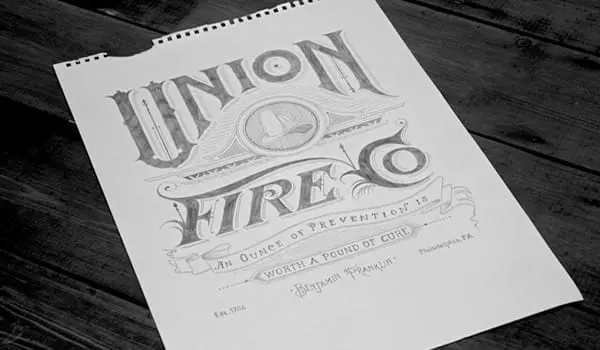 UNION
FIRE CO
AN OUNCE OF PREVENTION IS
WORTH A POUND OF CURE
Philadelphia, PA
BENJAMIN FRANKLIN
Est. 1736